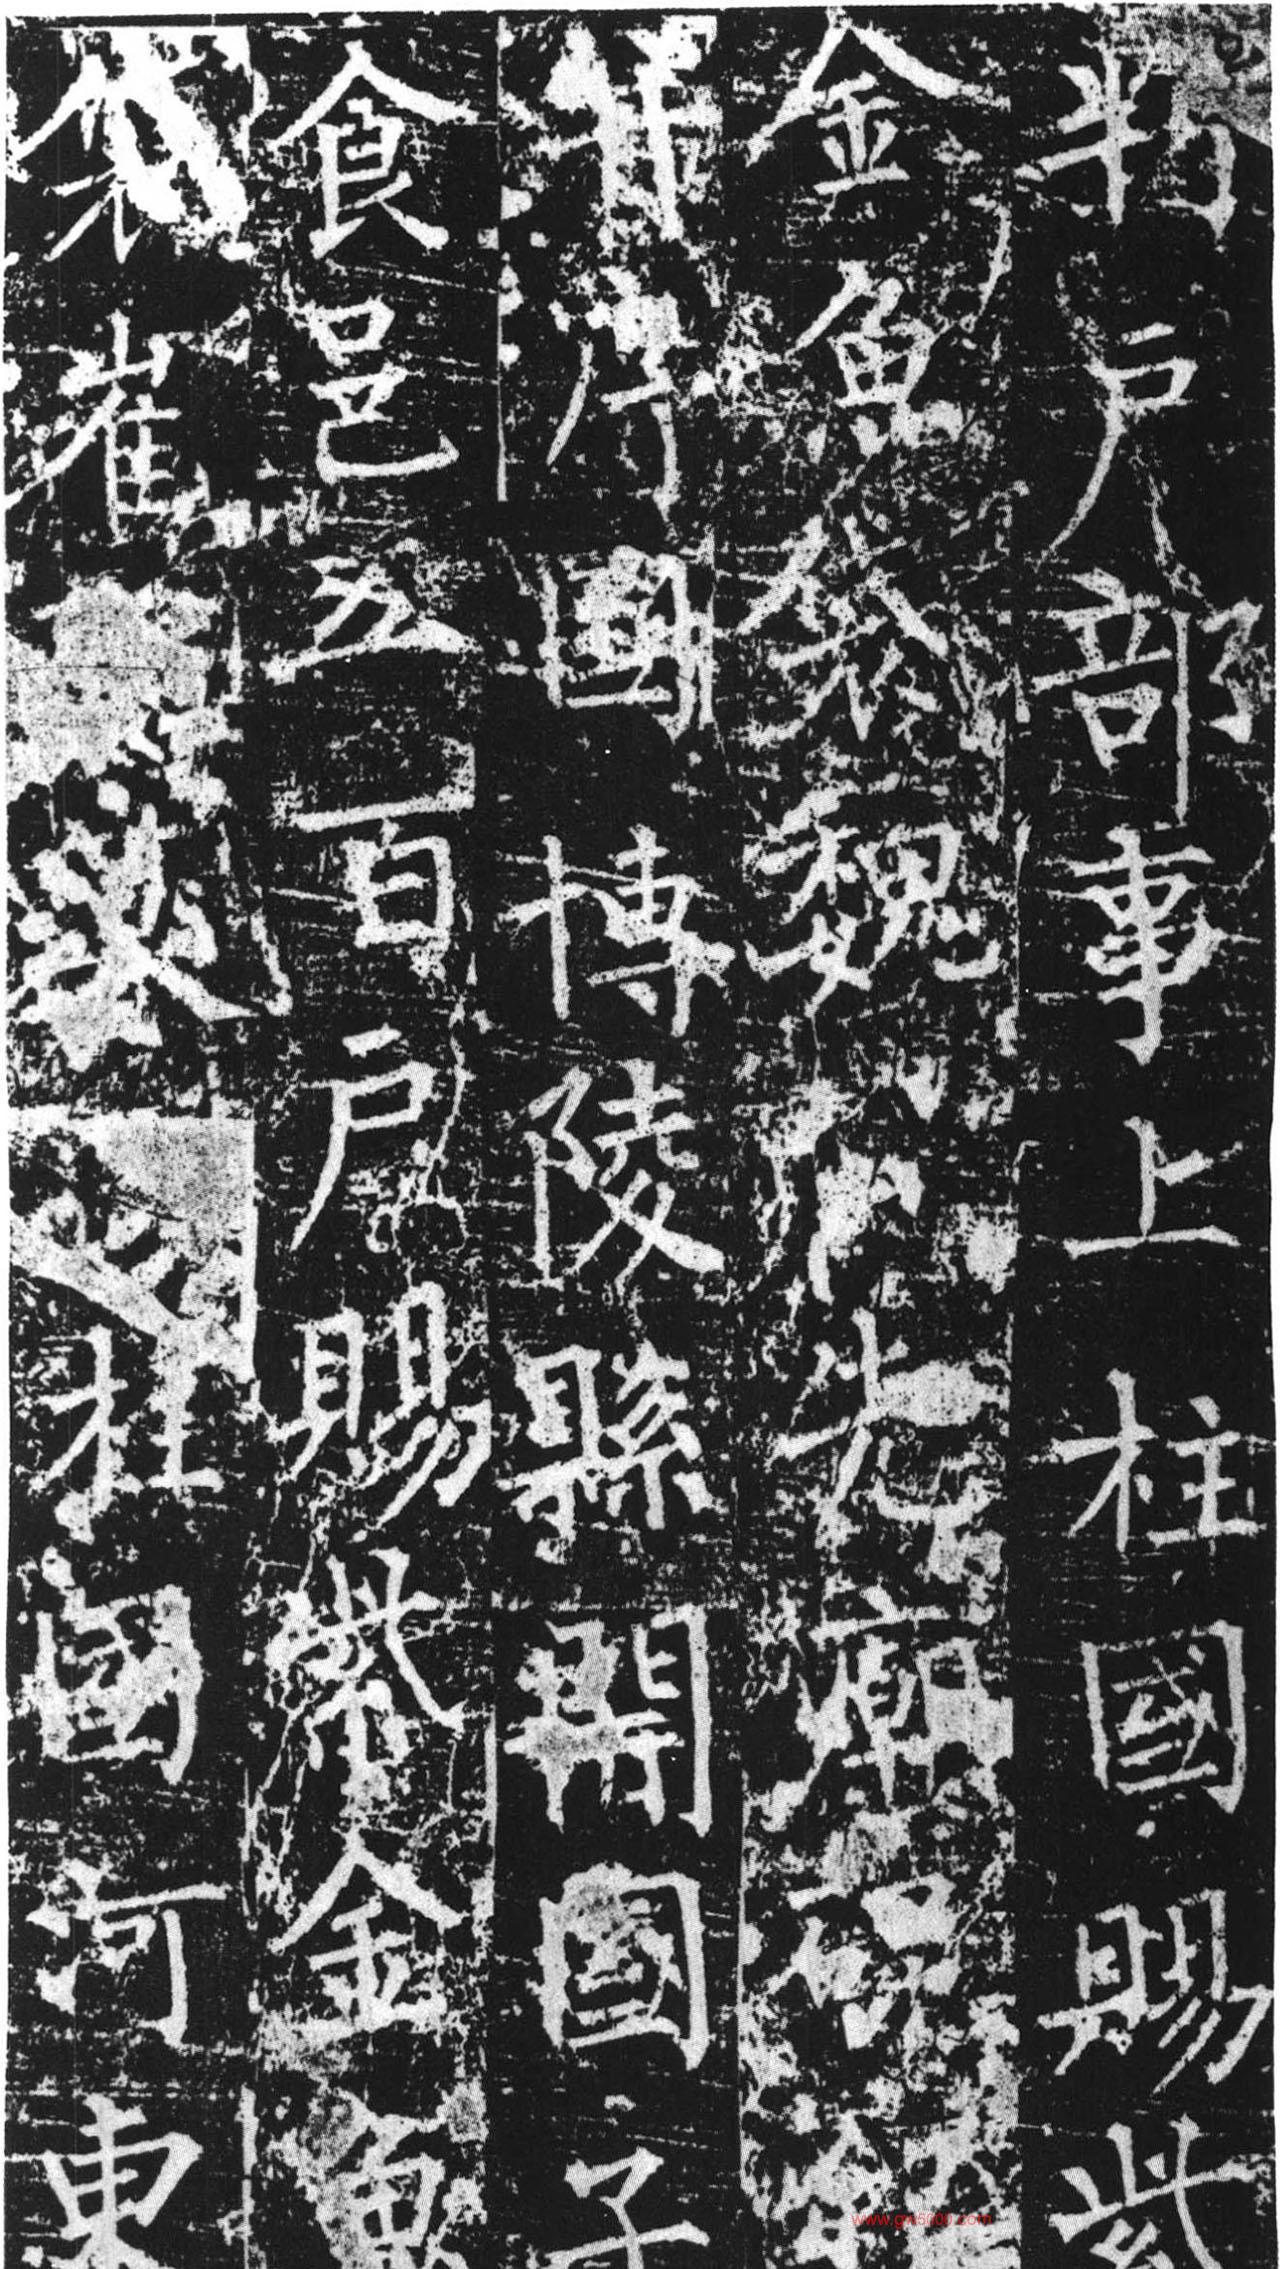 判戶部事上柱國賜紫
金魚袋魏公先廟碑銘
國博陵縣開國子
食邑五百戶賜紫金魚
崔柱國河東
www.gw5000.com